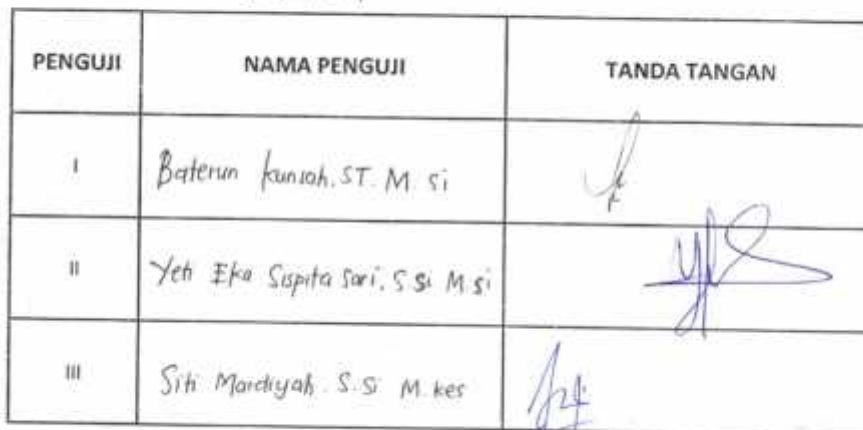 PENGUJI NAMA PENGUJI TANDA TANGAN
I Baterun kunsah. ST. M. si
II Yeti Eka Sispita Sari. S.Si M.si
III Siti Mardiyah. S.Si M.kes